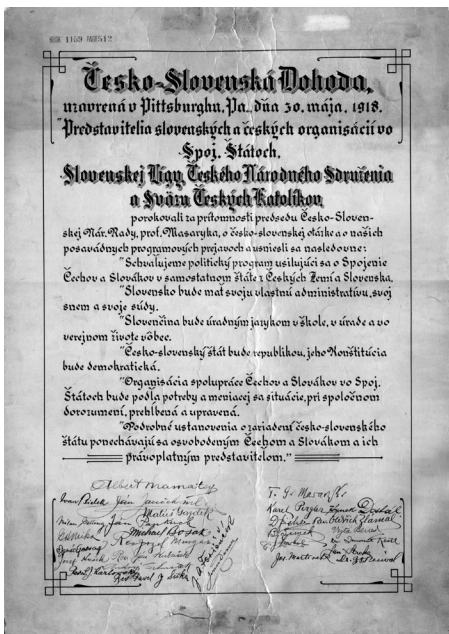 Česko-Slovenská Dohoda,
uzavrená v Pittsburghu, Pa., dňa 30. mája, 1918.
"Predstavitelia slovenských a českých organisácií vo
Spoj. Štátoch,
Slovenskej Ligy, Českého Národného Sdruženia
a Sväzu Českých Katolíkov
porokovali za prítomnosti predsedu Česko-Sloven-
skej Nár. Rady, prof. Masaryka, o česko-slovenskej otázke a o našich
posavádnych programových prejavoch a usniesli sa nasledovne:
"Schvaľujeme politický program usilujúci sa o Spojenie
Čechov a Slovákov v samostatnom štáte z Českých Zemí a Slovenska.
"Slovensko bude mať svoju vlastnú administratívu, svoj
snem a svoje súdy.
"Slovenčina bude úradným jazykom v škole, v úrade a vo
verejnom živote vôbec.
"Česko-slovenský štát bude republikou, jeho Konštitúcia
bude demokratická.
"Organisácia spolupráce Čechov a Slovákov vo Spoj.
Štátoch bude podľa potreby a meniacej sa situácie, pri spoločnom
dorozumení, prehĺbená a upravená.
"Podrobné ustanovenia o zariadení česko-slovenského
štátu ponechávajú sa osvobodeným Čechom a Slovákom a ich
právoplatným predstaviteľom."
Albert Mamatey
T. G. Masaryk
Ivan Bielek Ján Janček ml.
Karel Pergler
Matúš Gazdík
Dostál
Michael Bosák
Zlámal
Milan Getting
Vojta Beneš
Jozef Hušek
Rev. Pavel J. Šiška
Jos. Martinek